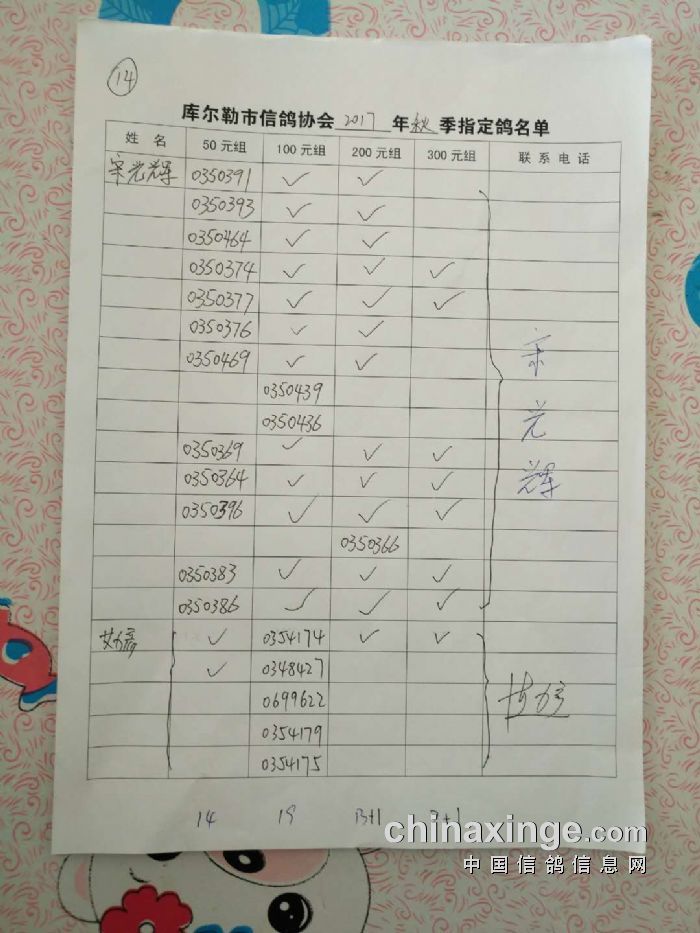 14
库尔勒市信鸽协会 2017 年 秋 季指定鸽名单
姓 名 50元组 100元组 200元组 300元组 联系电话
宋光辉 0350391 ✓ ✓
0350393 ✓ ✓
0350464 ✓ ✓
0350374 ✓ ✓ ✓
0350377 ✓ ✓ ✓
0350376 ✓ ✓
0350469 ✓ ✓
0350439
0350436
0350369 ✓ ✓ ✓
0350364 ✓ ✓ ✓
0350396 ✓ ✓ ✓
0350366
0350383 ✓ ✓ ✓
0350386 ✓ ✓ ✓
宋光辉
✓ 0354174 ✓ ✓
✓ 0348427
0699622
0354179
0354175
14 19 13+1
chinaxinge.com
中国信鸽信息网